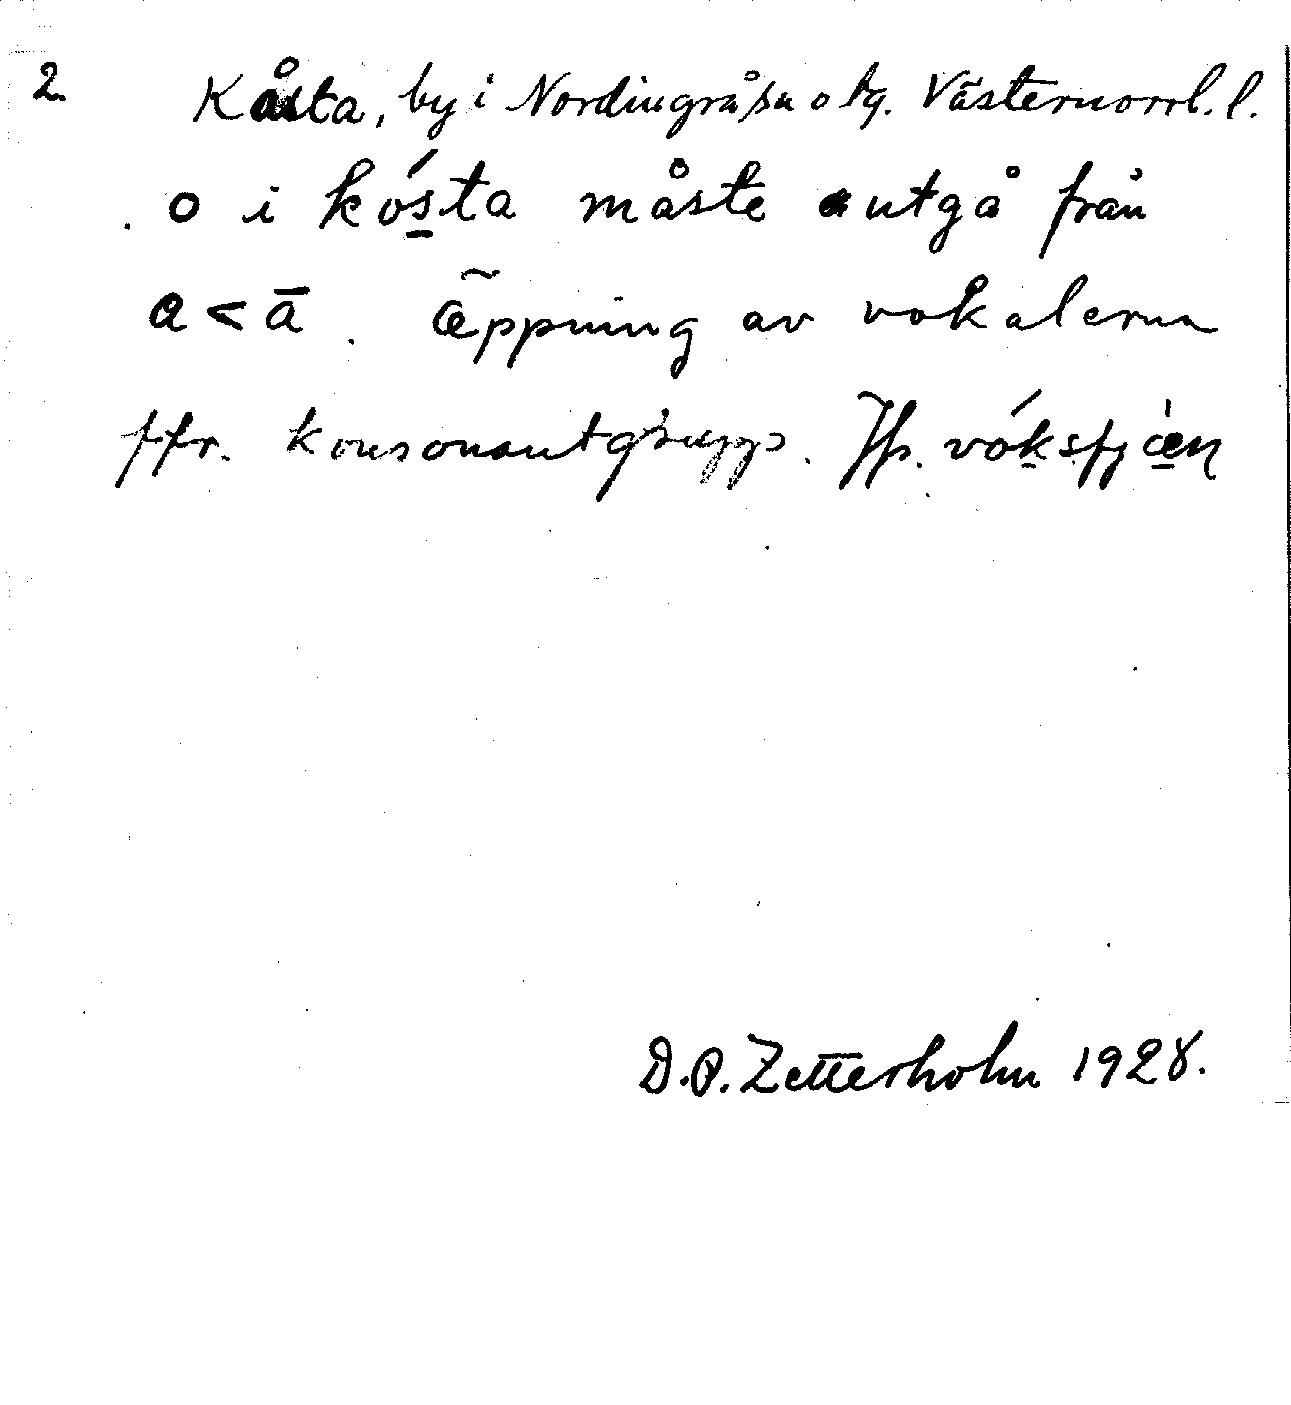 2. Kåsta, by i Nordingrå sn o tg. Västernorrl. l.
o i kós̱ta måste utgå från
a < ā. Œ̃ppning av vokalerna
ffr. konsonantgrupp. Jfr. vóḵsfjæ̱̀n
D.O. Zetterholm 1928.